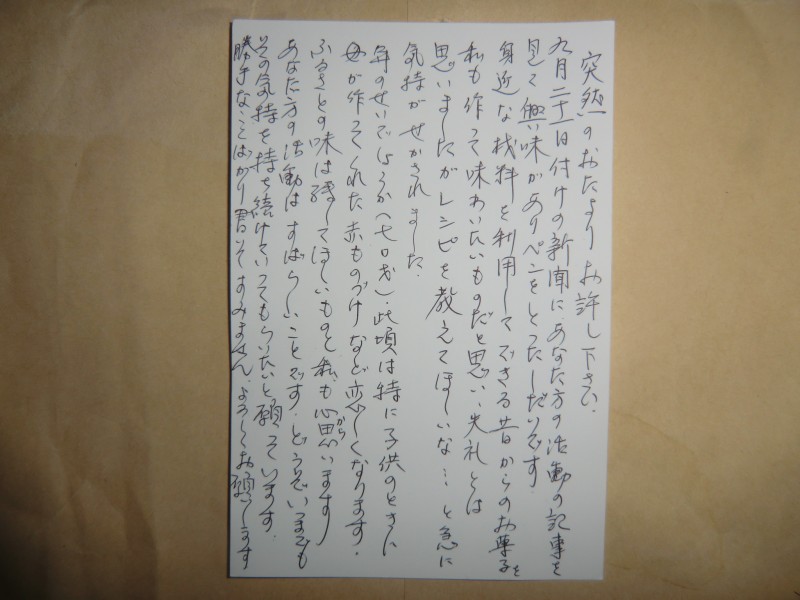 突然のおたよりお許し下さい.
九月二十一日付けの新聞に、あなた方の活動の記事を
見て興味がありペンをとったしだいです.
身近な材料を利用してできる昔からのお菓子を
私も作って味わいたいものだと思い、失礼とは
思いましたがレシピを教えてほしいな… と急に
気持がせかされました.
年のせいでしょうか(七〇才)、此頃は特に子供のときに
母が作ってくれた赤ものづけなど恋しくなります.
ふるさとの味は残してほしいものと私も心から思います
あなた方の活動はすばらしいことです. どうぞいつまでも
その気持を持ち続けていってもらいたいと願っています.
勝手なことばかり書いてすみません. よろしくお願いします